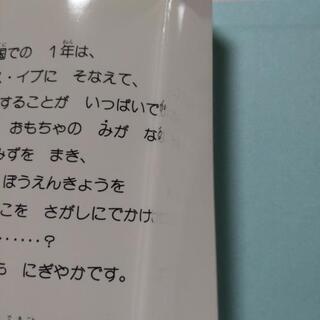 国での 1年は、
ス・イブに そなえて、
することが いっぱいで
おもちゃの みが な
みずを まき、
ぼうえんきょうを
こを さがしにでかけ、
……？
にぎやかです。